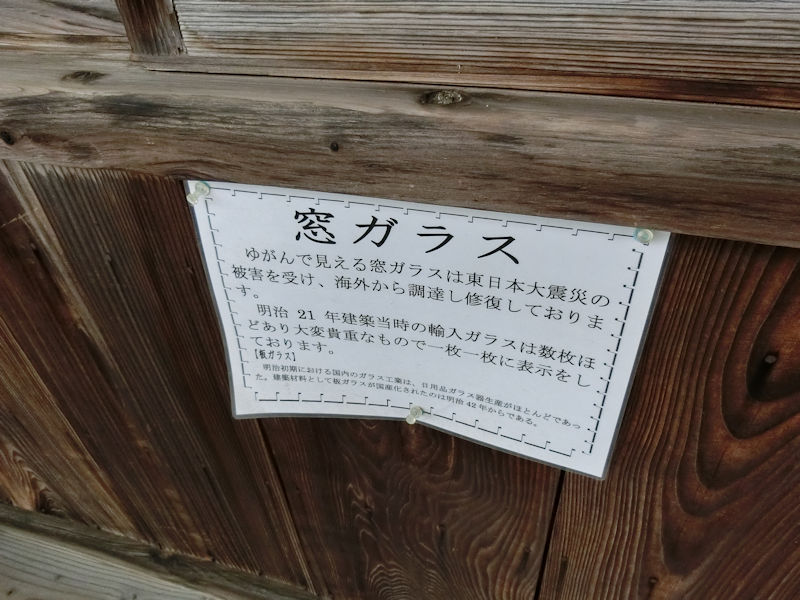 窓ガラス
ゆがんで見える窓ガラスは東日本大震災の
被害を受け、海外から調達し修復しておりま
す。
明治 21 年建築当時の輸入ガラスは数枚ほ
どあり大変貴重なもので一枚一枚に表示をし
ております。
【板ガラス】
明治初期における国内のガラス工業は、日用品ガラス器生産がほとんどであっ
た。建築材料として板ガラスが国産化されたのは明治 42 年からである。